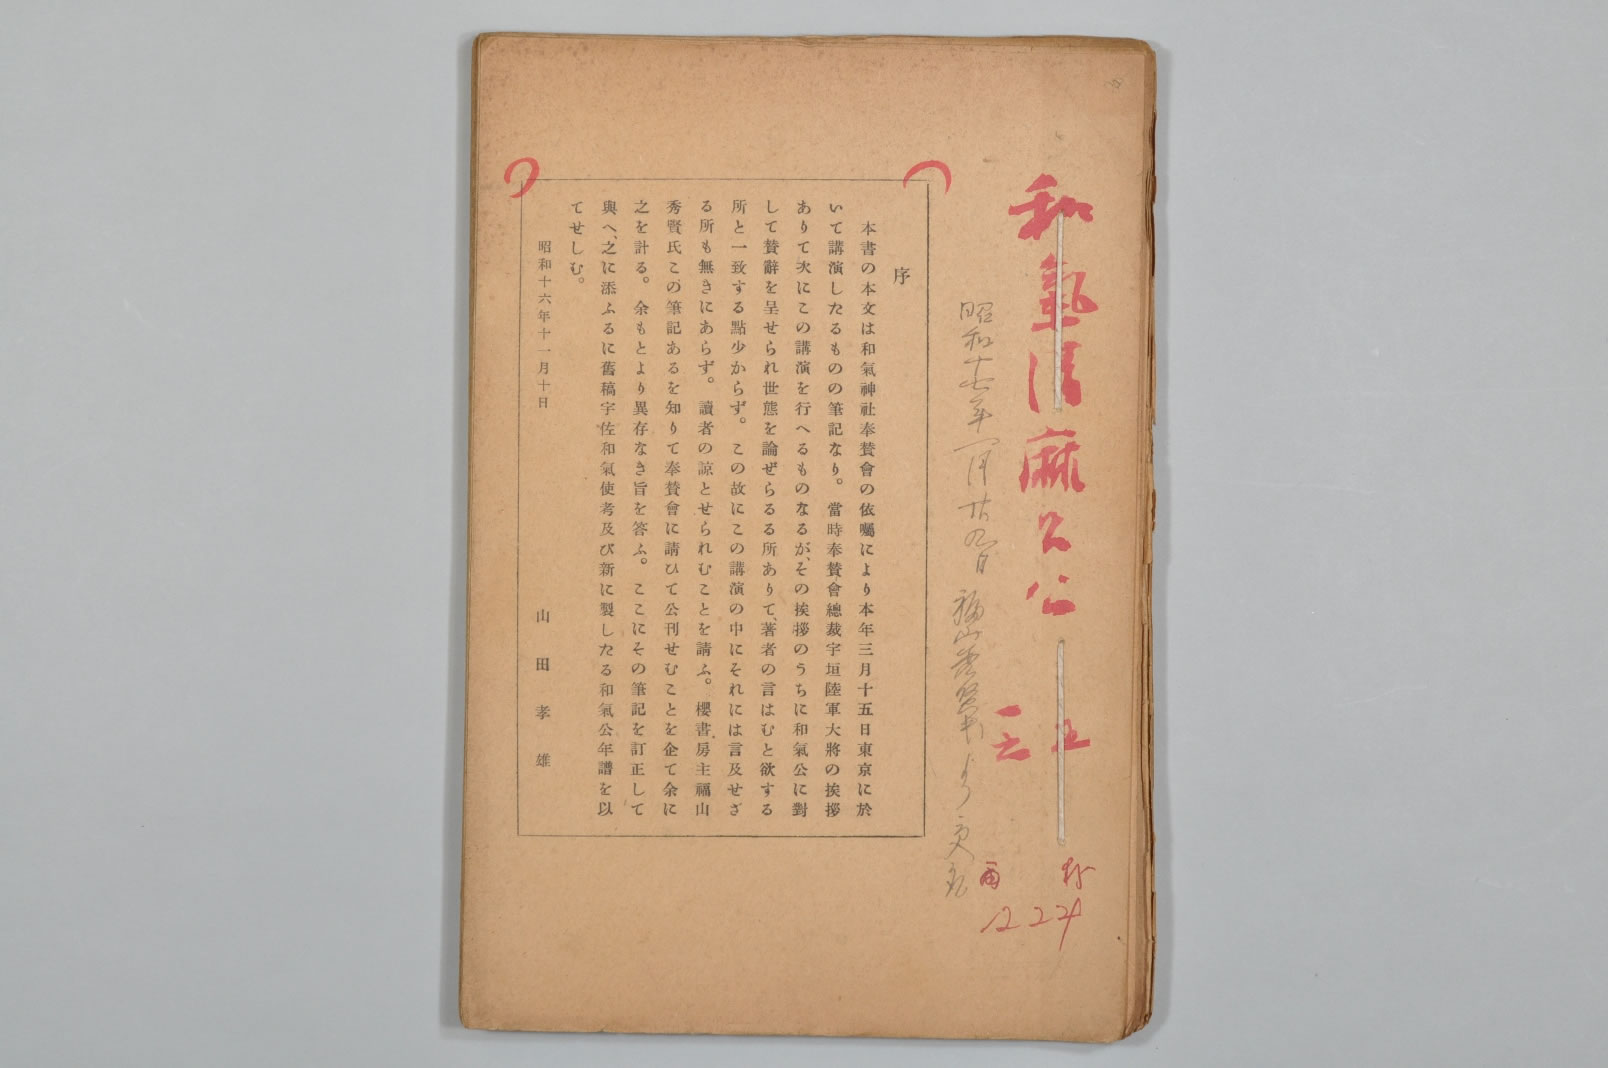 和氣清麻呂公
校正
再
12 24
昭和十七年一月廿九日 福山秀賢氏より
序
本書の本文は和氣神社奉贊會の依囑により本年三月十五日東京に於
いて講演したるものの筆記なり。當時奉贊會總裁宇垣陸軍大將の挨拶
ありて次にこの講演を行へるものなるが、その挨拶のうちに和氣公に對
して贊辭を呈せられ世態を論ぜらるる所ありて、著者の言はむと欲する
所と一致する點少からず。この故にこの講演の中にそれには言及せざ
る所も無きにあらず。讀者の諒とせられむことを請ふ。櫻書房主福山
秀賢氏この筆記あるを知りて奉贊會に請ひて公刊せむことを企て余に
之を計る。余もとより異存なき旨を答ふ。ここにその筆記を訂正して
與へ、之に添ふるに舊稿宇佐和氣使考及び新に製したる和氣公年譜を以
てせしむ。
昭和十六年十一月十日
山田孝雄